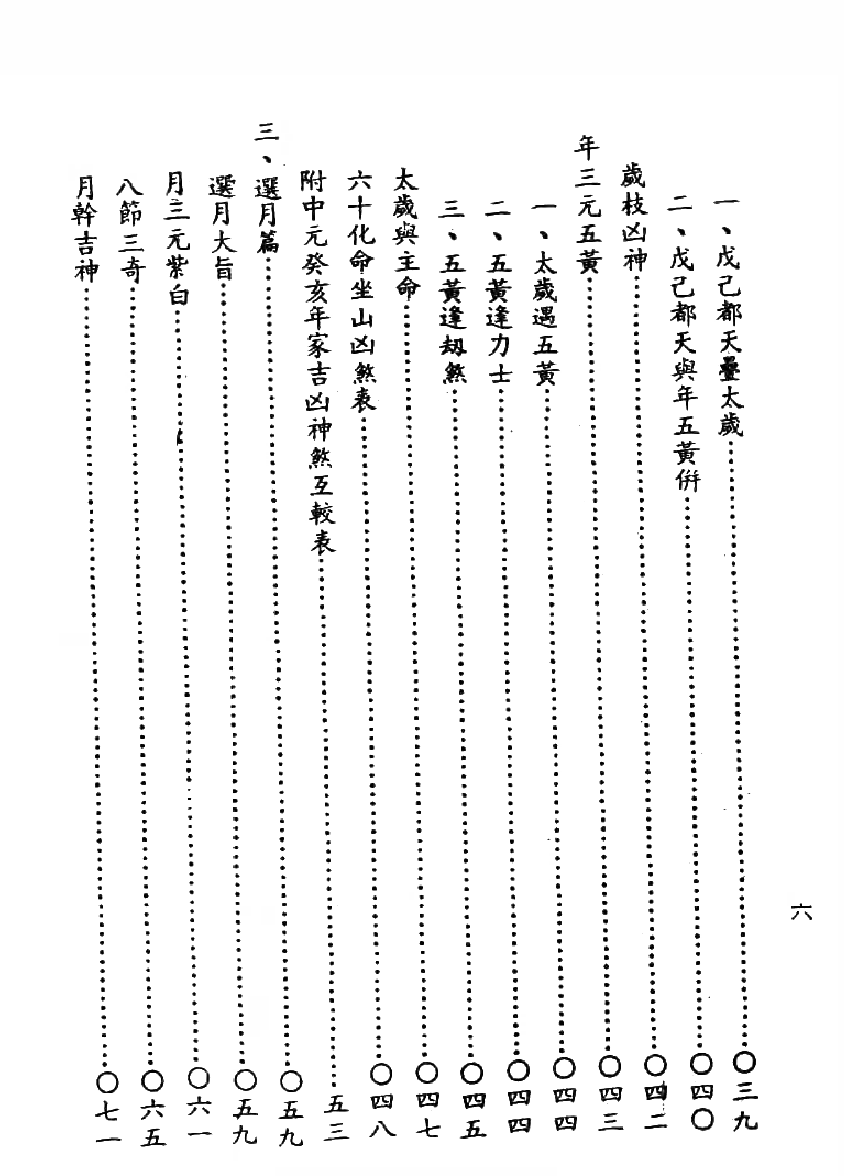 六
一、戊己都天疊太歲⋯⋯⋯⋯〇三九
二、戊己都天與年五黃併⋯⋯⋯⋯〇四〇
歲枝凶神⋯⋯⋯⋯〇四二
年三元五黃⋯⋯⋯⋯〇四三
一、太歲遇五黃⋯⋯⋯⋯〇四四
二、五黃逢力士⋯⋯⋯⋯〇四四
三、五黃逢劫煞⋯⋯⋯⋯〇四五
太歲與主命⋯⋯⋯⋯〇四七
六十化命坐山凶煞表⋯⋯⋯⋯〇四八
附中元癸亥年家吉凶神煞互較表⋯⋯⋯⋯五三
三、選月篇⋯⋯⋯⋯〇五九
選月大旨⋯⋯⋯⋯〇五九
月三元紫白⋯⋯⋯⋯〇六一
八節三奇⋯⋯⋯⋯〇六五
月幹吉神⋯⋯⋯⋯〇七一